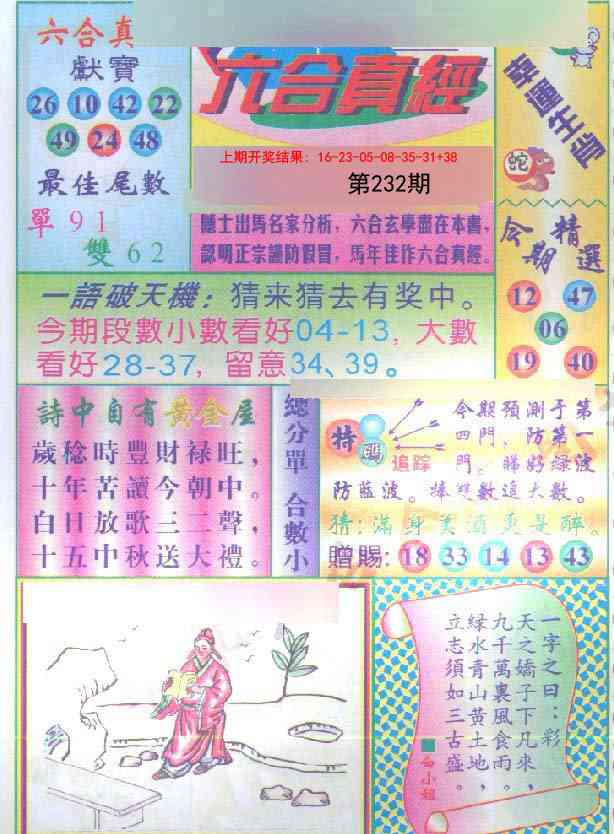 六合真
獻寶
26 10 42 22
49 24 48
最佳尾數
單 9 1
雙 6 2
六合真經
上期开奖结果: 16-23-05-08-35-31+38
第232期
隱士出馬名家分析，六合玄學盡在本書，
認明正宗謹防假冒，馬年佳作六合真經。
幸運生肖
蛇
今期精選
12 47
06
19 40
一語破天機：猜来猜去有奖中。
今期段數小數看好04-13，大數
看好28-37，留意34、39。
詩中自有黃金屋
歲稔時豐財禄旺，
十年苦讀今朝中。
白日放歌三二聲，
十五中秋送大禮。
總分單 合數小
特碼
追踪
今期預測于第
四門，防第一
門。睇好綠波
防藍波。捧雙數追大數。
猜：滿身美酒更是醉。
贈賜：18 33 14 13 43
一字之曰：彩
天之嬌子下凡來，
九千萬裏風食雨，
緑水青山黄土地，
立志須如三古盛。
白小姐